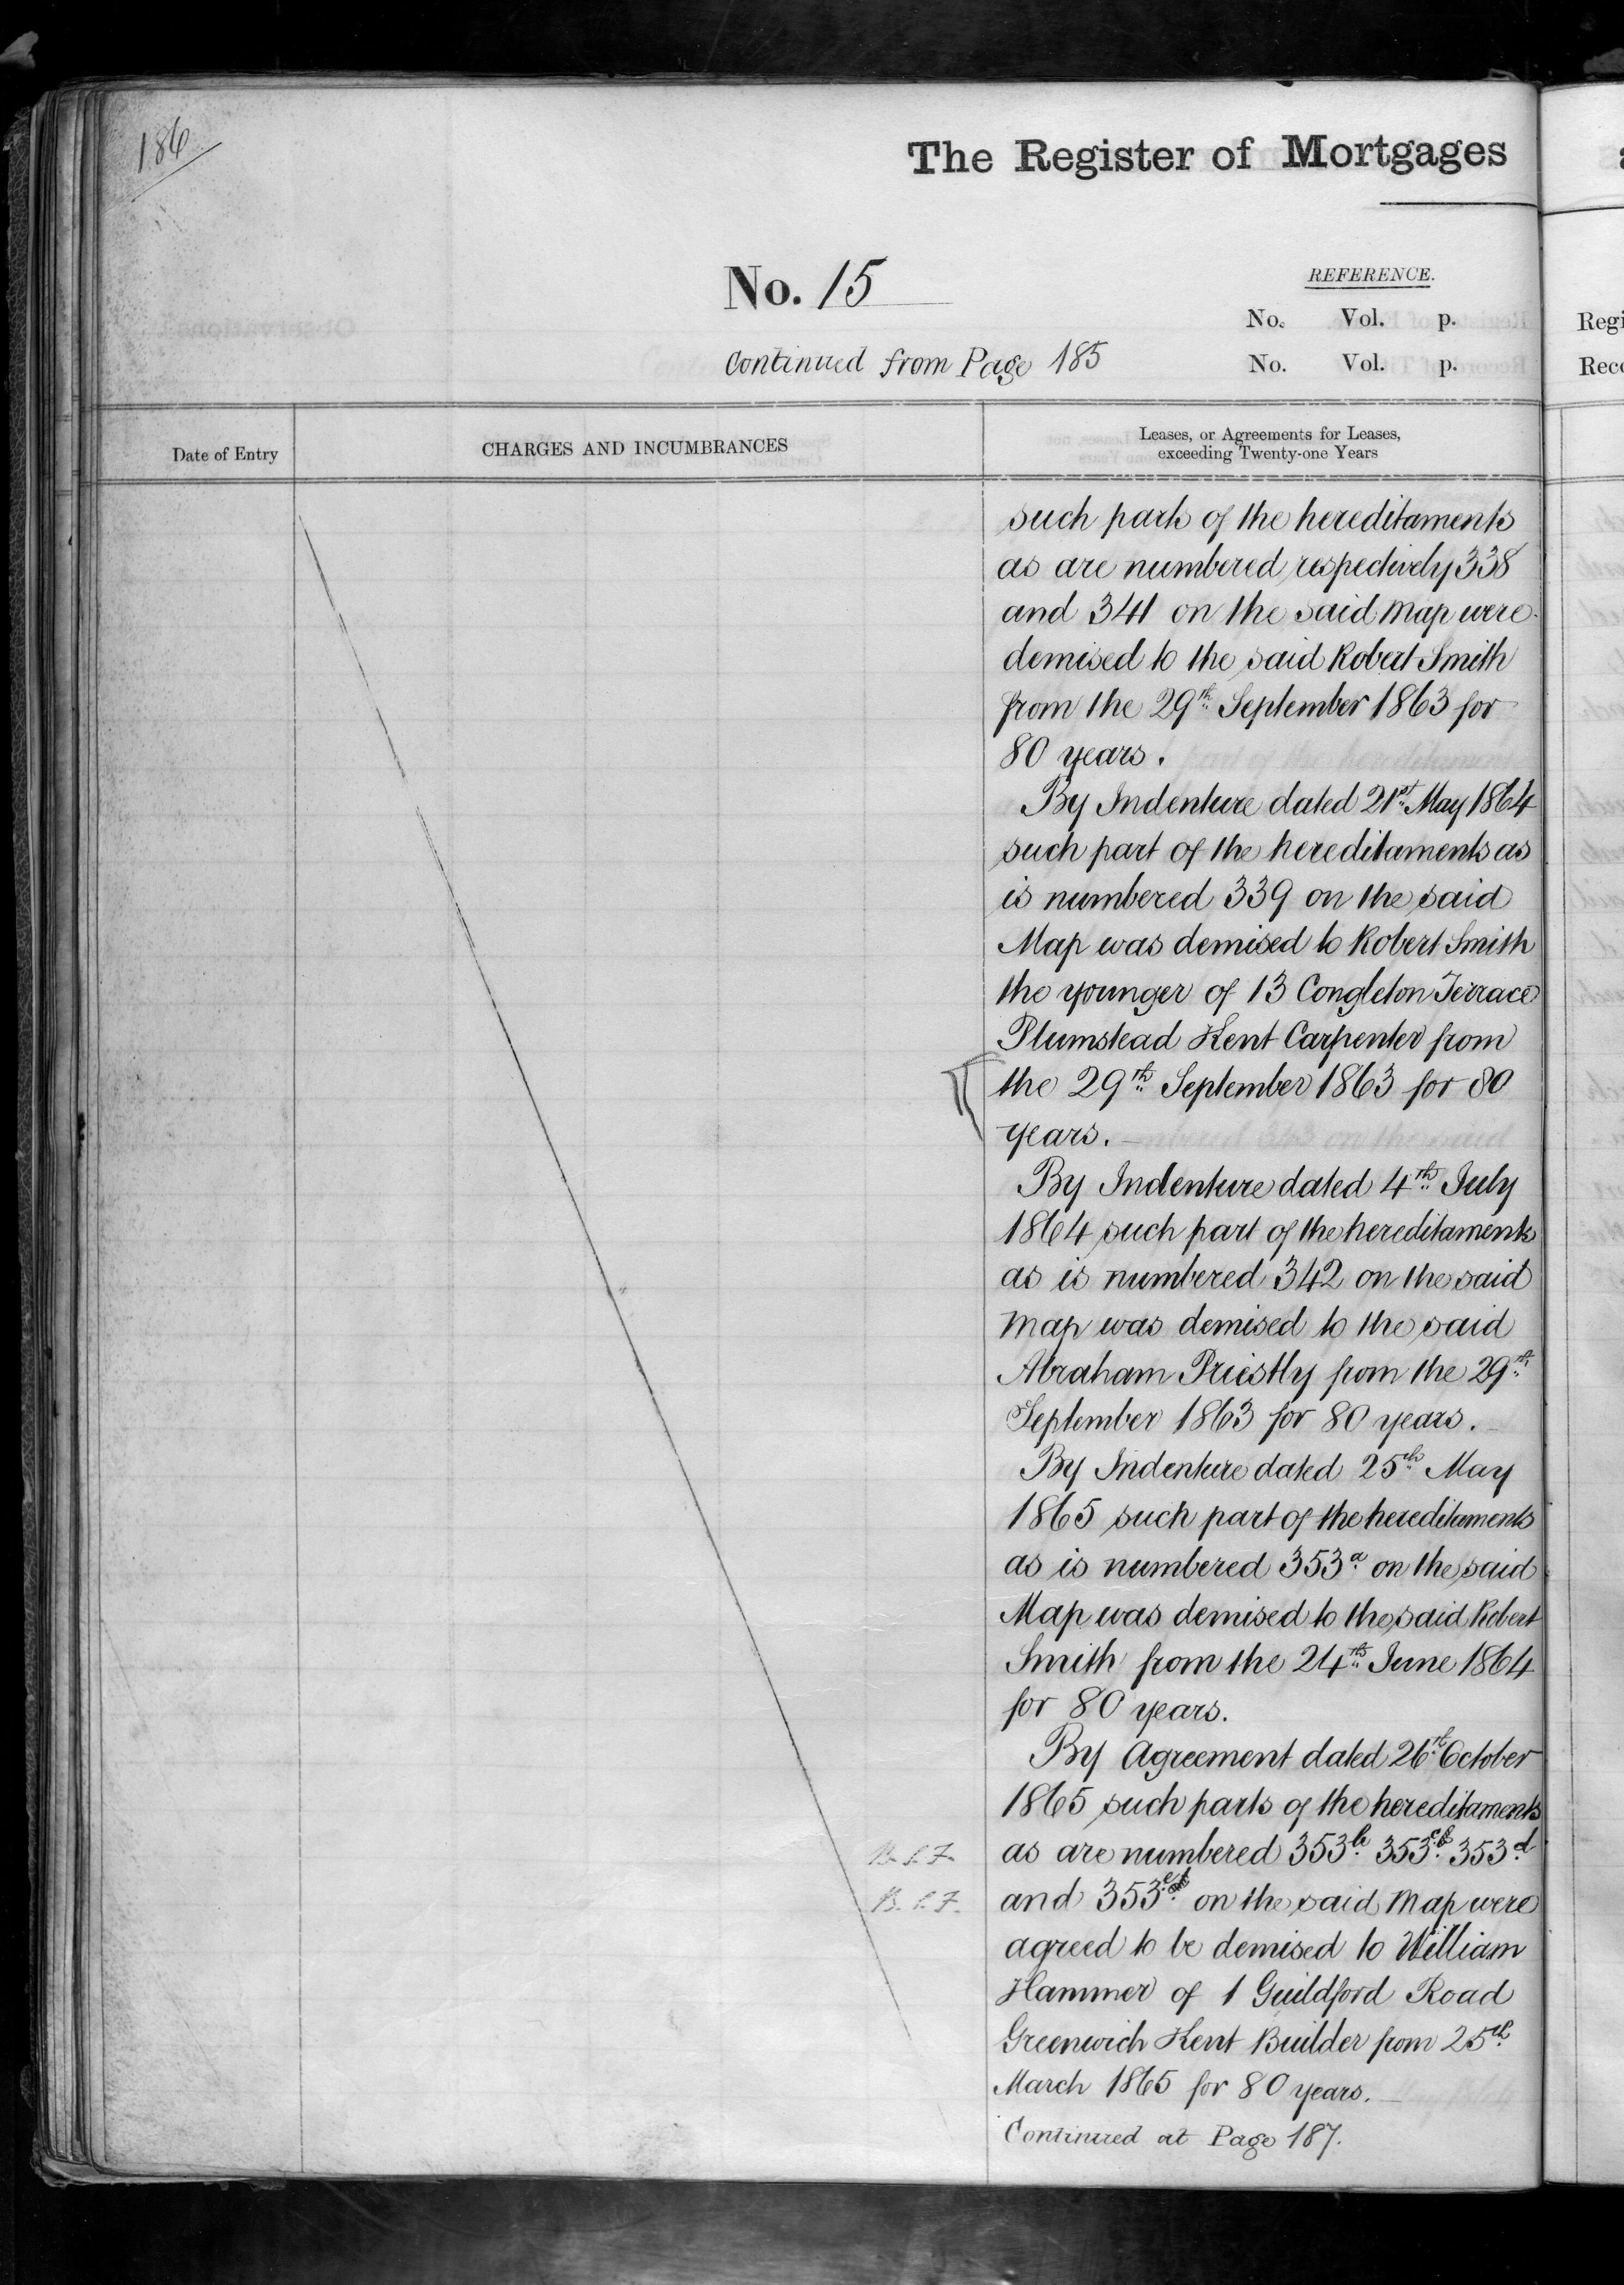 186
The Register of Mortgages
No. 15
REFERENCE.
No. Vol. p.
Continued from Page 185
No. Vol. p.
Regi
Reco
Date of Entry
CHARGES AND INCUMBRANCES
Leases, or Agreements for Leases,
exceeding Twenty-one Years
such parts of the hereditaments
as are numbered respectively 338
and 341 on the said Map were
demised to the said Robert Smith
from the 29th September 1863 for
80 years.
By Indenture dated 21st May 1864
such part of the hereditaments as
is numbered 339 on the said
Map was demised to Robert Smith
the younger of 13 Congleton Terrace
Plumstead Kent Carpenter from
the 29th September 1863 for 80
years.
By Indenture dated 4th July
1864 such part of the hereditaments
as is numbered 342 on the said
Map was demised to the said
Abraham Priestly from the 29th
September 1863 for 80 years.
By Indenture dated 25th May
1865 such part of the hereditaments
as is numbered 353a on the said
Map was demised to the said Robert
Smith from the 24th June 1864
for 80 years.
By Agreement dated 26th October
1865 such parts of the hereditaments
as are numbered 353b 353c 353d
and 353e on the said Map were
agreed to be demised to William
Hammer of 1 Guildford Road
Greenwich Kent Builder from 25th
March 1865 for 80 years.
Continued at Page 187.